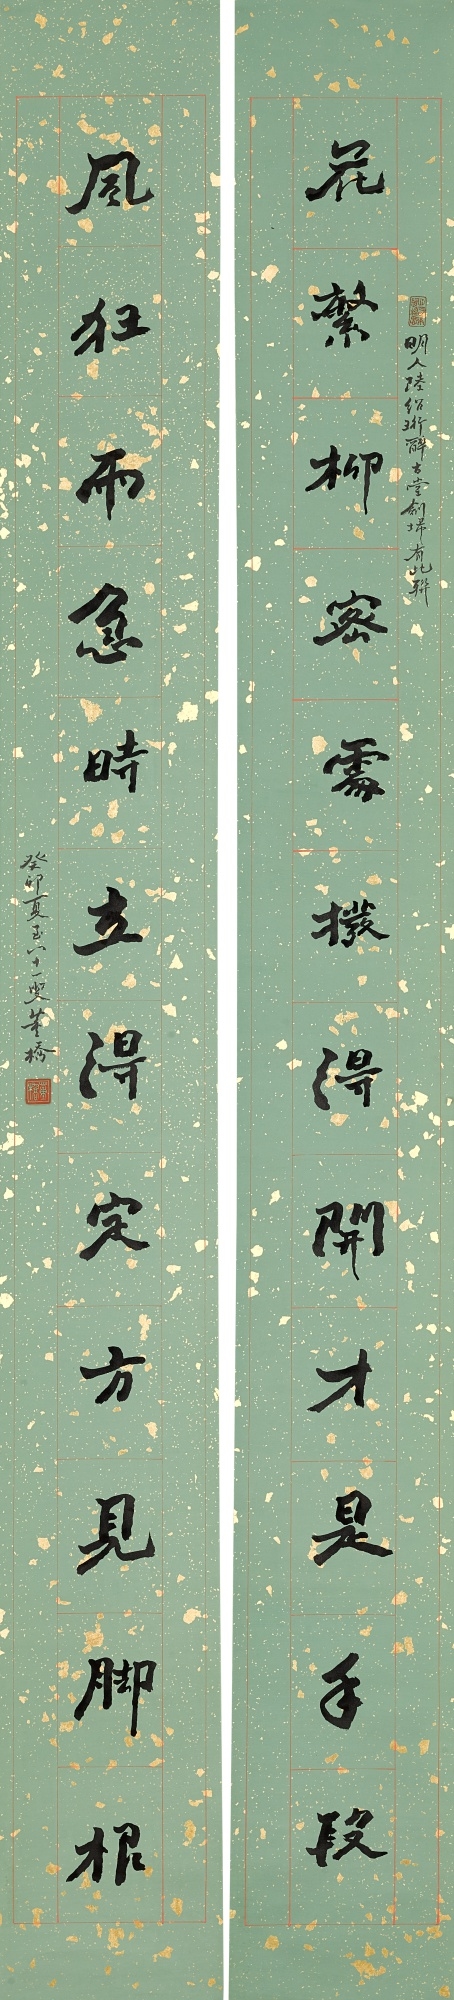 花繁柳密處撥得開才是手段
明人陸紹珩醉古堂劍埽有此聯
風狂雨急時立得定方見脚根
癸卯夏至八十一叟董橋